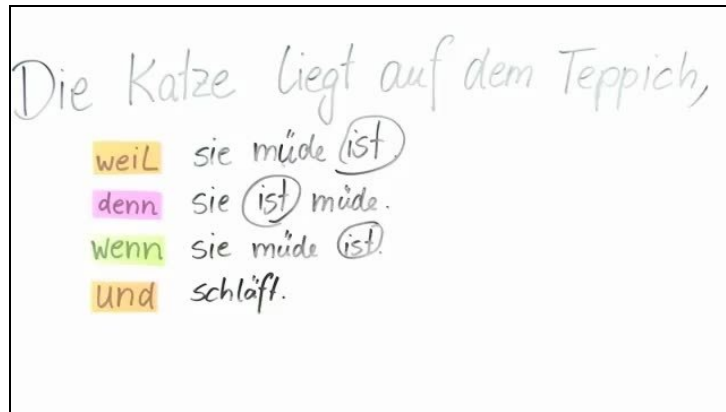 Die Katze liegt auf dem Teppich,
weil sie müde ist.
denn sie ist müde.
wenn sie müde ist.
und schläft.